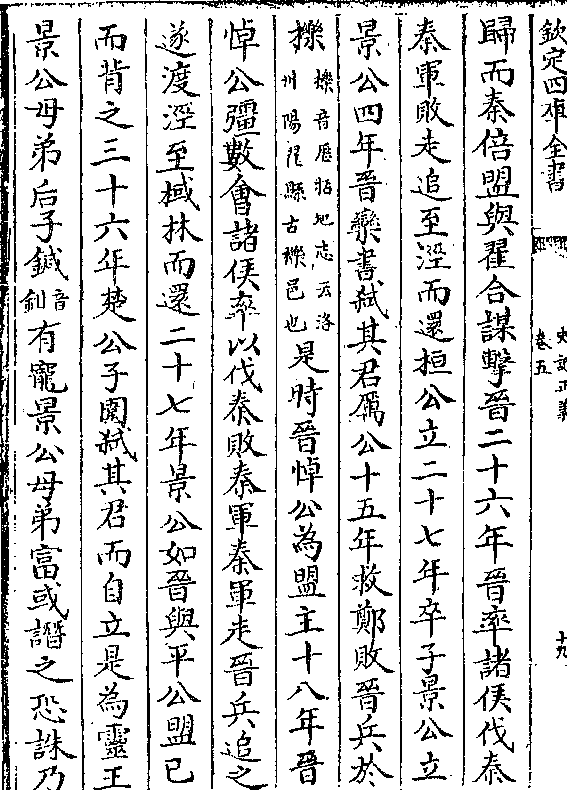 欽定四庫全書
史記正義
卷五
十九
歸而秦倍盟與翟合謀擊晉二十六年晉率諸侯伐秦
秦軍敗走追至涇而還桓公立二十七年卒子景公立
景公四年晉欒書弒其君厲公十五年救鄭敗晉兵於
櫟櫟音歷括地志云洛州陽翟縣古櫟邑也是時晉悼公為盟主十八年晉
悼公彊數會諸侯率以伐秦敗秦軍秦軍走晉兵追之
遂渡涇至棫林而還二十七年景公如晉與平公盟已
而背之三十六年楚公子圍弒其君而自立是為靈王
景公母弟后子鍼音鉗有寵景公母弟富或譖之恐誅乃